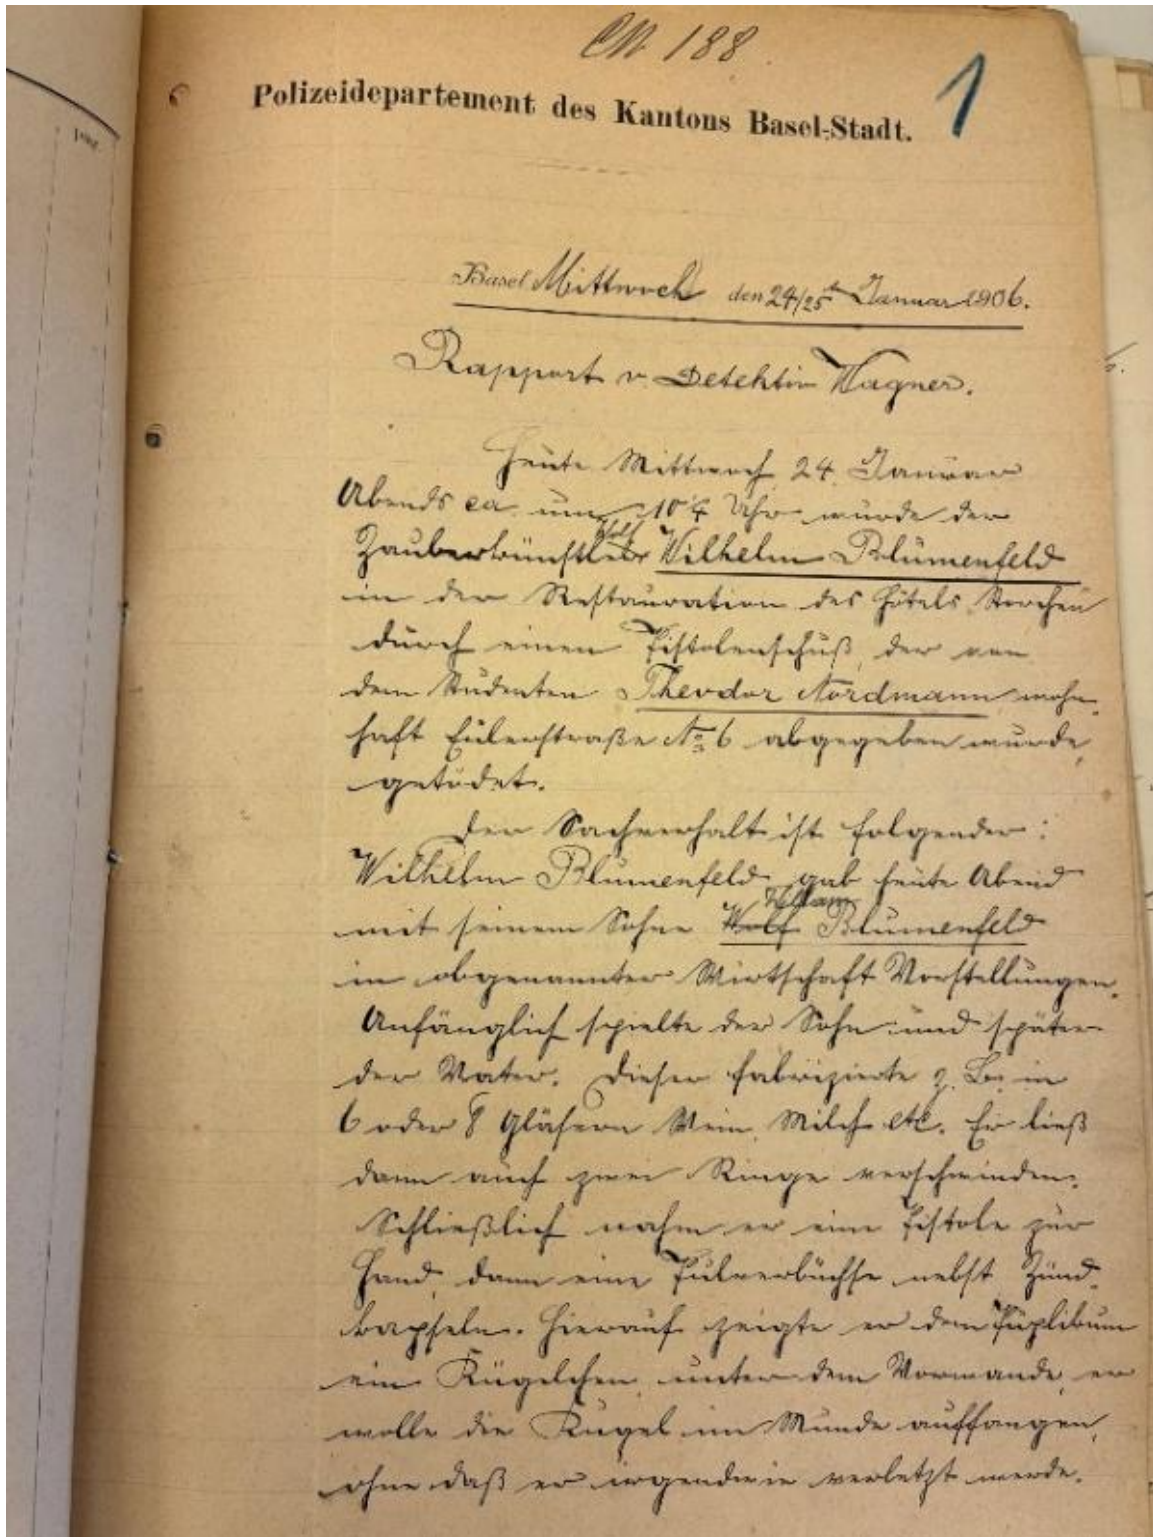 188
1
Polizeidepartement des Kantons Basel-Stadt.
Basel Mittwoch den 24/25t Januar 1906.
Rapport v. Detektiv Wagner.
Heute Mittwoch 24. Januar
Abends ca. um 10¼ Uhr wurde der
Wolf
Zauberkünstler Wilhelm Blumenfeld
in der Restauration des Hôtels Storchen
durch einen Pistolenschuß, der von
dem Studenten Theodor Nordmann, wohn-
haft Eulerstraße No 6 abgegeben wurde,
getödet.
Der Sachverhalt ist folgender:
Wilhelm Blumenfeld gab heute Abend
mit seinem Sohne Wolf Blumenfeld
in obgenannter Wirtschaft Vorstellungen.
Anfänglich spielte der Sohn und später
der Vater. Dieser fabrizierte z. B. in
6 oder 8 Gläsern Wein, Milch etc. Er ließ
dann auch zwei Ringe verschwinden.
Schließlich nahm er eine Pistole zur
Hand, dann eine Pulverbüchse nebst Zünd-
kapseln. Hierauf zeigte er dem Puplikum
ein Kügelchen, unter dem Vorwande, er
wolle die Kugel im Munde auffangen,
ohne daß er irgendwie verletzt werde.